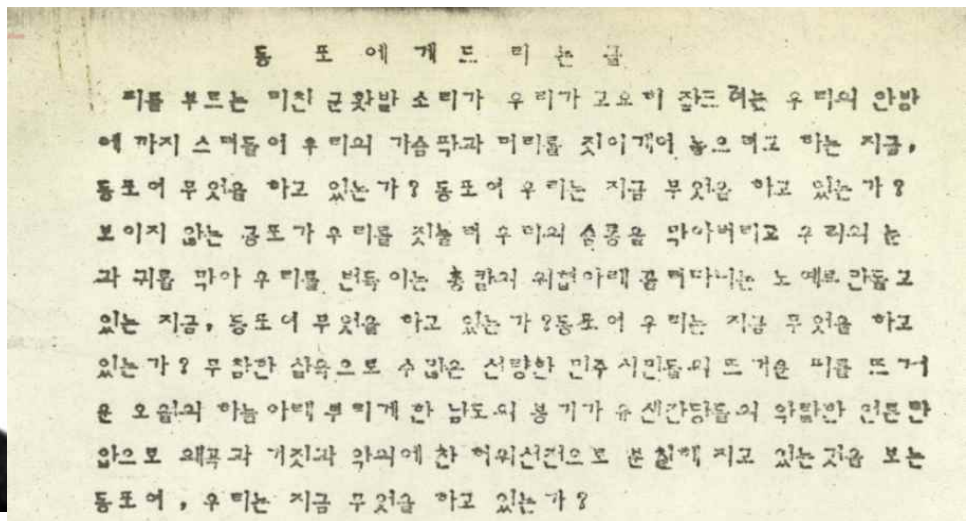 동포에게 드리는 글
피를 부르는 미친 군홧발 소리가 우리가 고요히 잠드려는 우리의 안방
에 까지 스며들어 우리의 가슴팍과 머리를 짓이개어 놓으려고 하는 지금,
동포여 무엇을 하고 있는가? 동포여 우리는 지금 무엇을 하고 있는가?
보이지 않는 공포가 우리를 짓눌러 우리의 숨통을 막아버리고 우리의 눈
과 귀를 막아 우리를 번득이는 총칼의 위협아래 끌려다니는 노예로 만들고
있는 지금, 동포여 무엇을 하고 있는가?동포여 우리는 지금 무엇을 하고
있는가? 무참한 살육으로 수많은 선량한 민주시민들의 뜨거운 피를 뜨거
운 오월의 하늘아래 뿌리게 한 남도의 봉기가 유신잔당들의 악랄한 언론탄
압으로 왜곡과 거짓과 악의에 찬 허위선전으로 분칠해 지고 있는것을 보는
동포여, 우리는 지금 무엇을 하고 있는가?